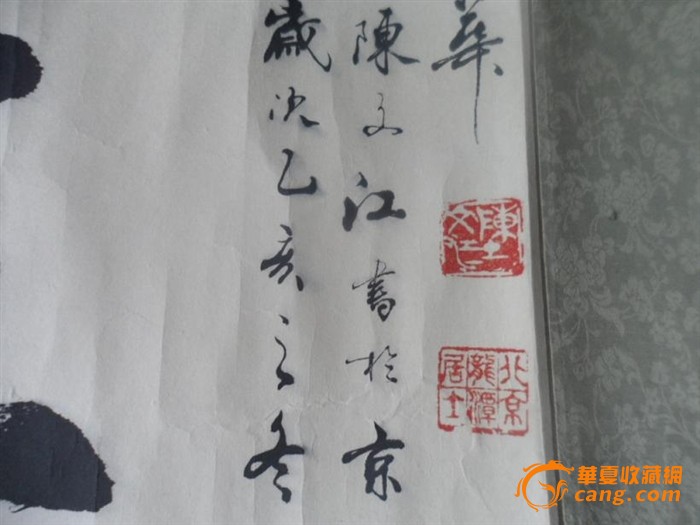 華
陳文江書於京
歲次乙亥之冬
陳文江
北京
龍潭
居士
華夏收藏網
cang.com